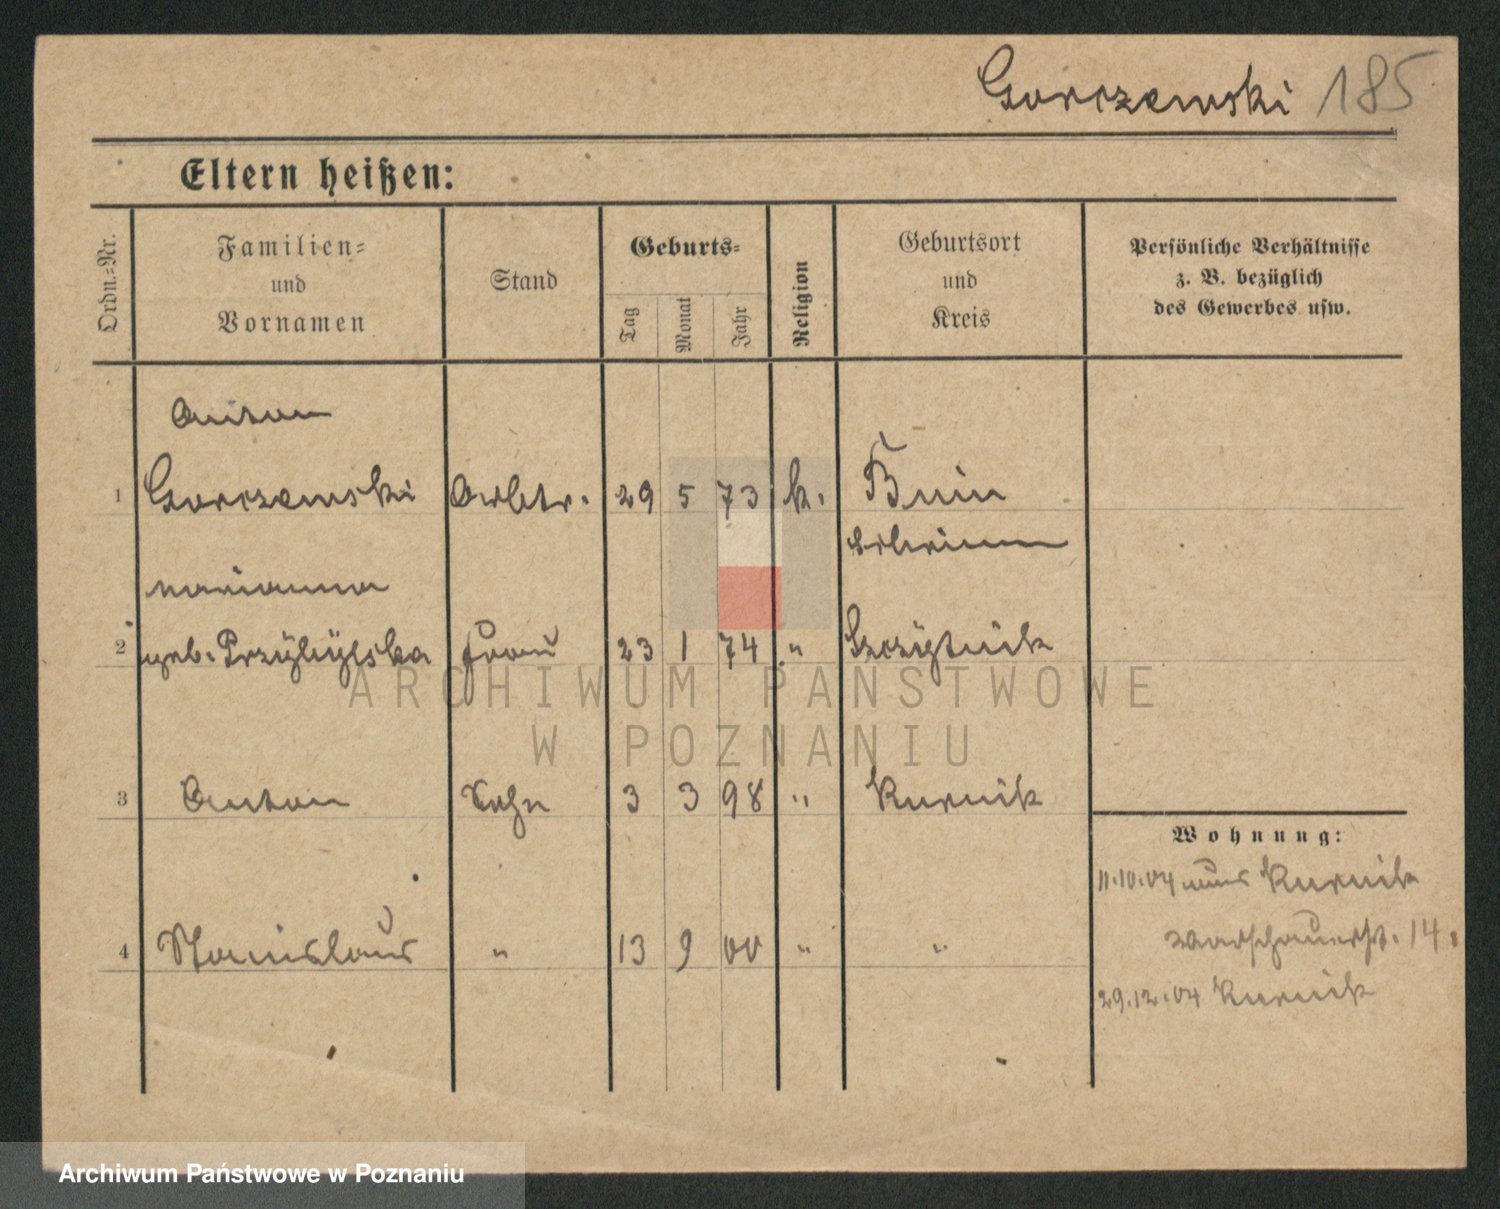 Gorczewski 185
Eltern heißen:
Ordn.-Nr.
Familien-
und
Vornamen
Stand
Geburts-
Tag
Monat
Jahr
Religion
Geburtsort
und
Kreis
Persönliche Verhältnisse
z. B. bezüglich
des Gewerbes usw.
Anton
1 Gorczewski Arbtr. 29 5 73 k. Bnin
Schrimm
Marianna
2 geb. Przybylska Frau 23 1 74 "
3 Anton Sohn 3 3 98 " Kurnik
Wohnung:
11.10.04 aus Kurnik
4 Stanislaus " 13 9 00 " "
Warschauerstr. 14.
29.12.04 Kurnik
ARCHIWUM PAŃSTWOWE
W POZNANIU
Archiwum Państwowe w Poznaniu